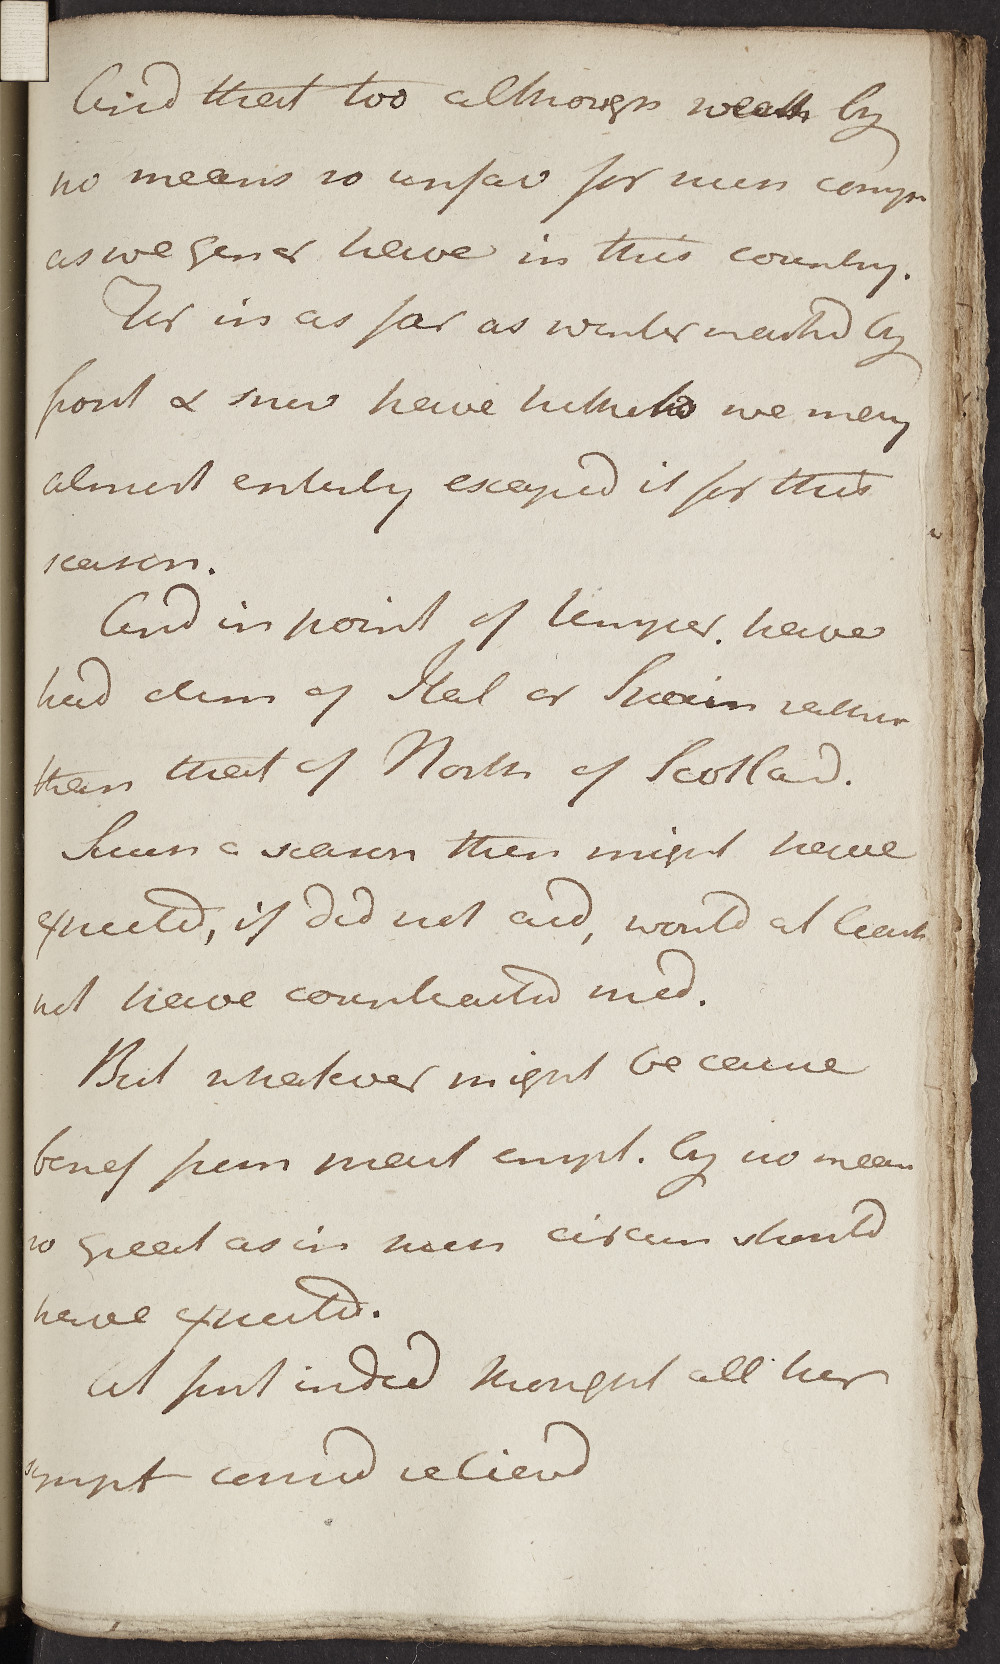 And that too although weath by
no means so unfav for such comp
as we gener have in this country.
For in as far as winter marked by
frost & snow have hitherto we may
almost enterly escaped it for this
season.
And in point of temper. have
had clim of Ital or Spain rather
than that of North of Scotland.
Such a season then might have
expected, if did not aid, would at least
not have counteracted med.
But whatever might be cause
benef from meas empt. by no mean
so great as in such circum should
have expected.
At first indeed thought all her
sympt considd relievd